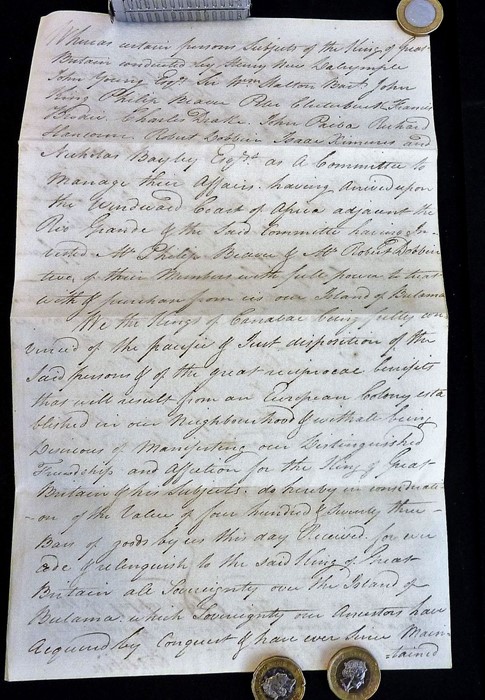 Whereas certain persons Subjects of the King of Great
Britain conducted by Henry Hew Dalrymple
John Young Esqrs. Sir Wm. Halton Bart. John
King Philip Beaver Peter Clutterbuck Francis
Brodie Charles Drake John Paiba Richard
Hancorne Robert Dobbin Isaac Ximenes and
Nicholas Bayley Esqrs. as a Committee to
Manage their Affairs. having Arrived upon
the Windward Coast of Africa adjacent the
Rio Grande & the Said Committee having In-
vested Mr. Philip Beaver & Mr. Robert Dobbin
two of their Members with full power to treat
with & purchase from us our Island of Bulama
We the Kings of Canabac being fully con
vinced of the pacific & Just disposition of the
Said persons & of the great reciprocal benefits
that will result from an European Colony esta
blished in our Neighbourhood & withall being
Desirous of Manifesting our Distinguished
Friendship and Affection for the King of Great
Britain & his Subjects. do hereby in considerati
on of the Value of four hundred & Seventy three -
Bars of goods by us this day Received. for ever
cede & relinquish to the Said King of Great
Britain all Sovereignty over the Island of
Bulama. which Sovereignty our Ancestors have
Acquired by Conquest & have ever Since Main-
-tained